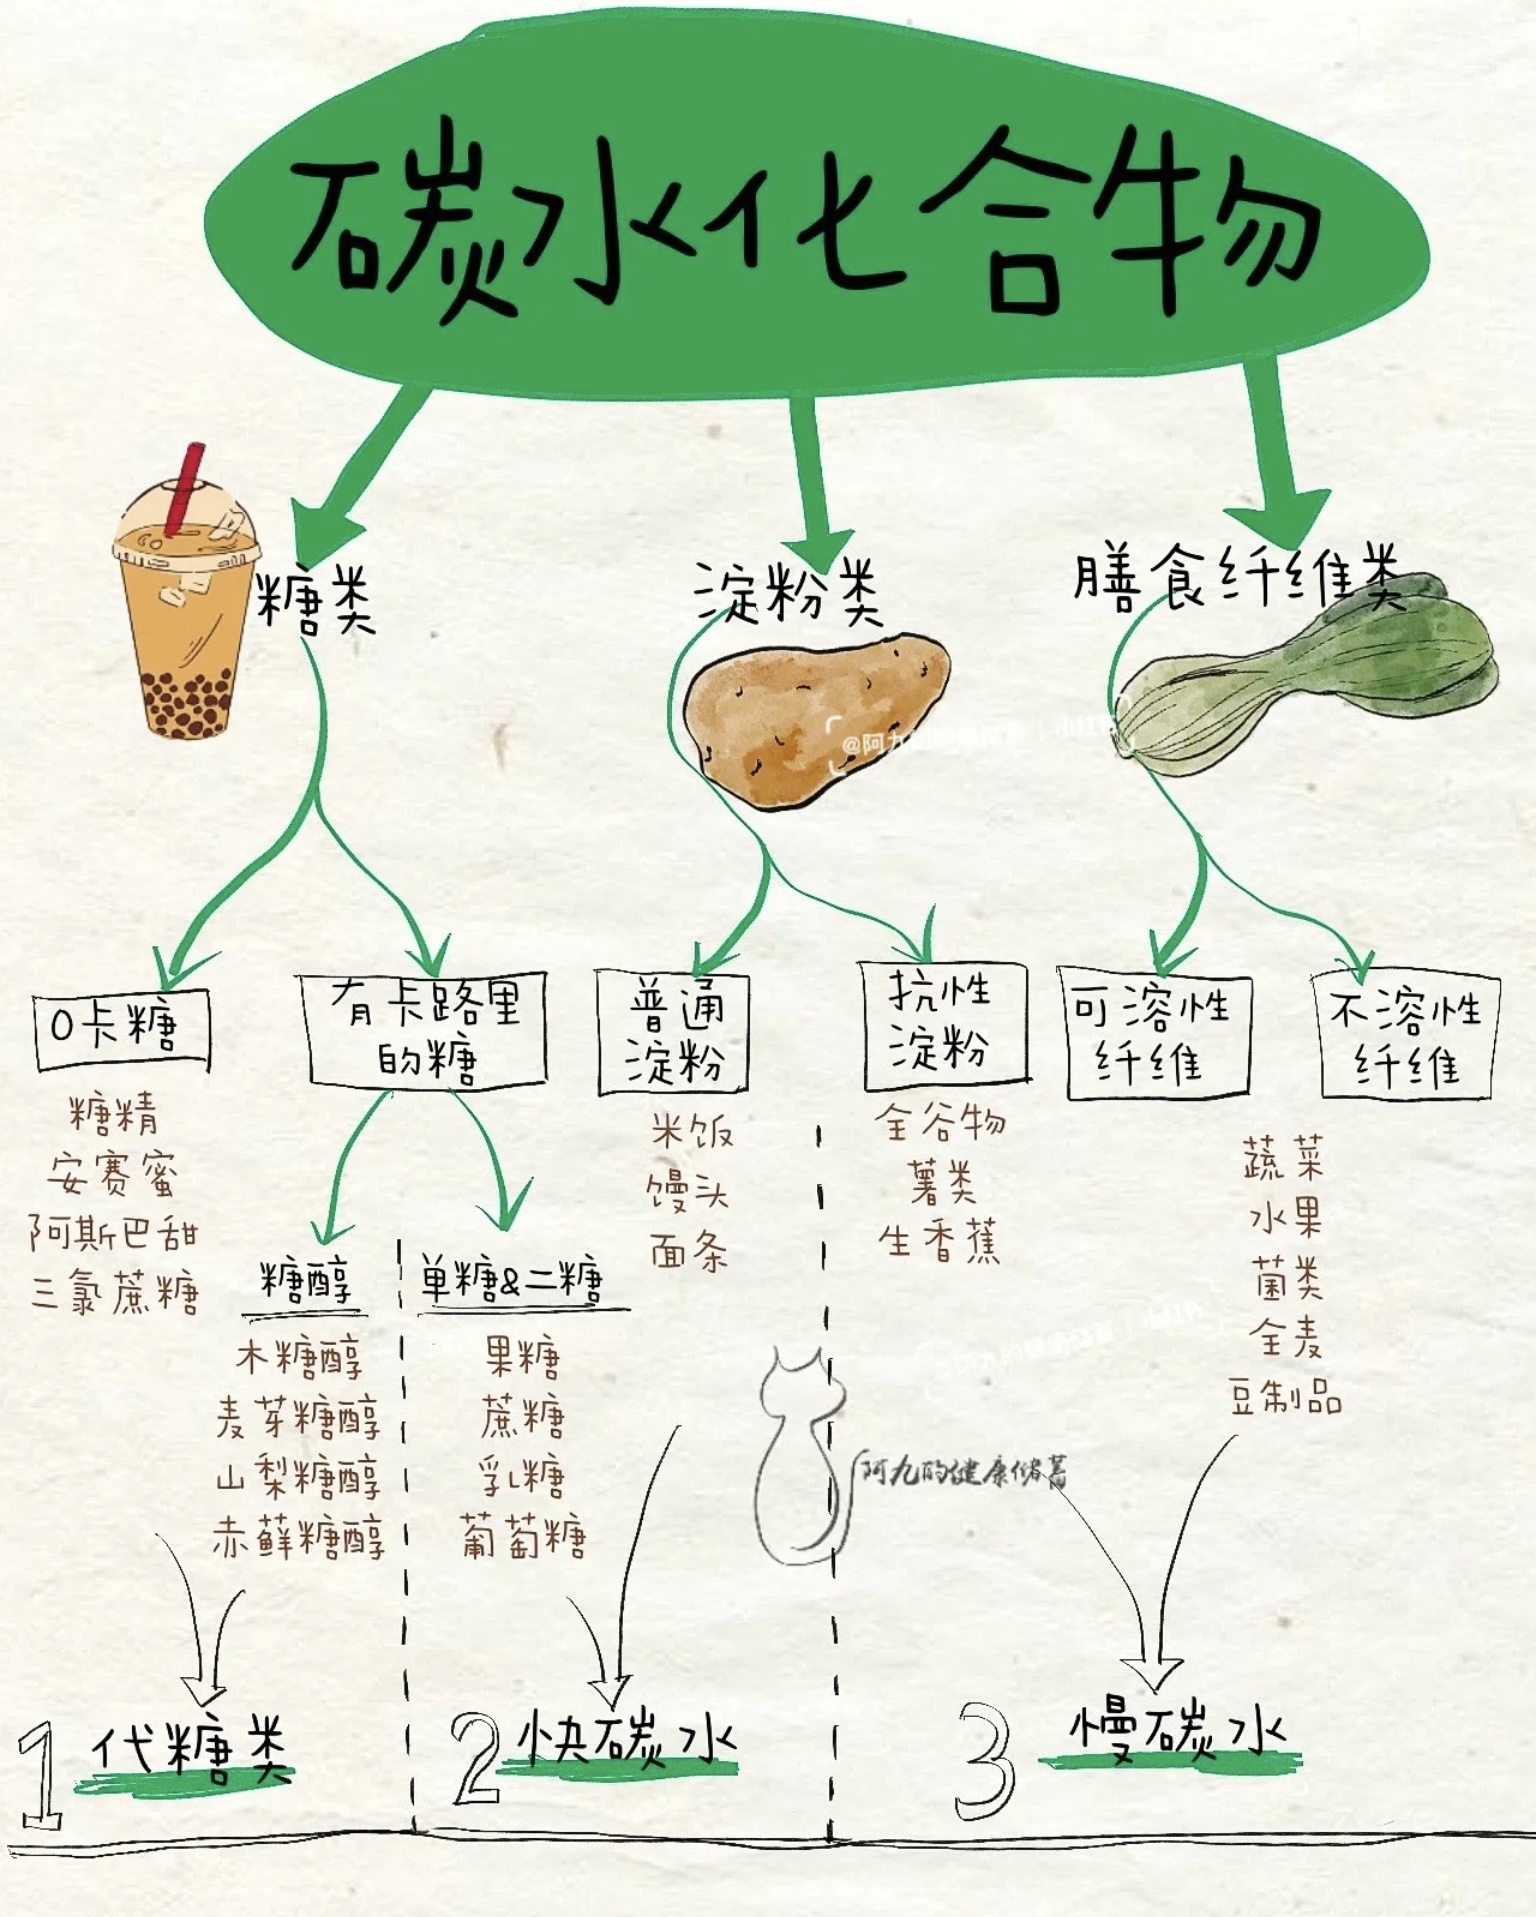 碳水化合物
糖类
淀粉类
膳食纤维类
0卡糖
有卡路里
的糖
普通
淀粉
抗性
淀粉
可溶性
纤维
不溶性
纤维
糖精
安赛蜜
阿斯巴甜
三氯蔗糖
糖醇
木糖醇
麦芽糖醇
山梨糖醇
赤藓糖醇
单糖&二糖
果糖
蔗糖
乳糖
葡萄糖
米饭
馒头
面条
全谷物
薯类
生香蕉
蔬菜
水果
菌类
全麦
豆制品
阿九的健康储蓄
1 代糖类
2 快碳水
3 慢碳水